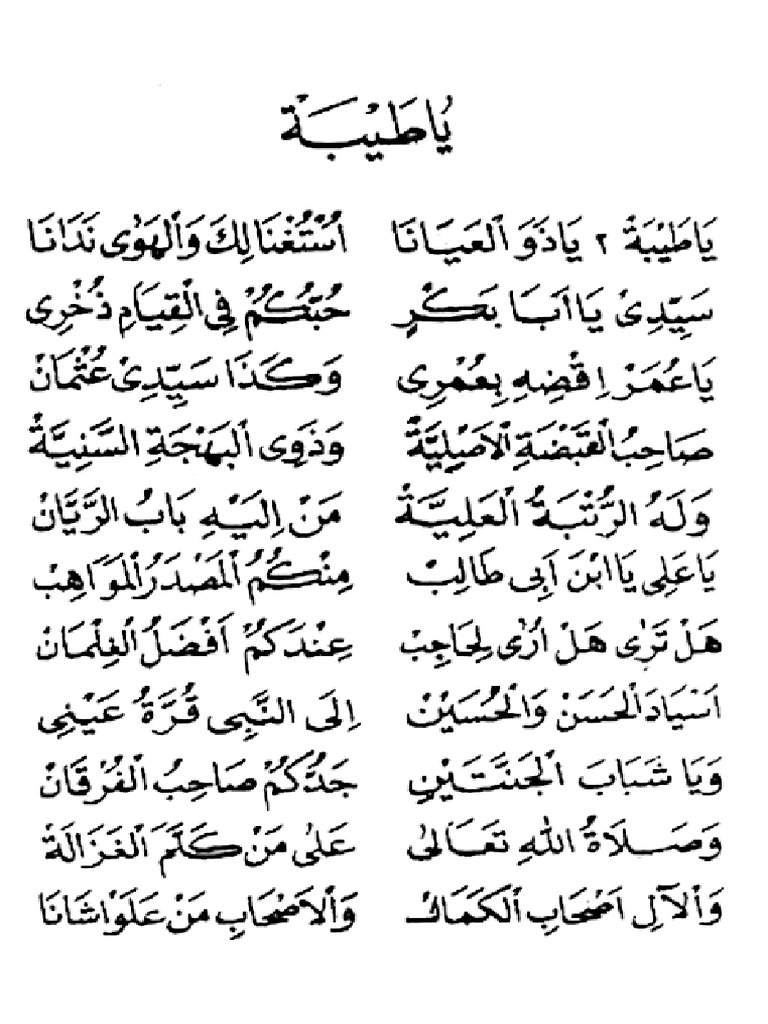 يَا طَيْبَةْ
يَا طَيْبَةْ ٢ يَا ذَوَ الْعَيَانَا اُشْتُغْنَا لِكَ وَالْهَوٰى نَدَانَا
سَيِّدِىْ يَا اَبَا بَكْرٍ حُبُّكُمْ فِى الْقِيَامِ ذُخْرِى
يَا عُمَرْ اِقْضِهِ بِعُمْرِى وَكَذَا سَيِّدِىْ عُثْمَانْ
صَاحِبُ الْقَبْضَةِ الْاَصِلِيَّةْ وَذَوِى الْبَهْجَةِ السَّنِيَّةْ
وَلَهُ الرُّتْبَةُ الْعَلِيَّةْ مَنْ اِلَيْهِ بَابُ الرَّيَّانْ
يَا عَلِى يَا ابْنَ اَبِى طَالِبْ مِنْكُمُ الْمَصْدَرُ الْمَوَاهِبْ
هَلْ تَرٰى هَلْ اُرٰى لِحَاجِبْ عِنْدَكُمْ اَفْضَلُ الْغِلْمَانْ
اَسْيَادَ الْحَسَنْ وَالْحُسَيْنْ اِلَى النَّبِى قُرَّةُ عَيْنِى
وَيَا شَبَابَ الْجَنَّتَيْنِ جَدُّكُمْ صَاحِبُ الْفُرْقَانْ
وَصَلَاةُ اللّٰهِ تَعَالٰى عَلٰى مَنْ كَلَّمَ الْغَزَالَةْ
وَالْاٰلِ اَصْحَابِ الْكَمَالْ وَالْاَصْحَابِ مَنْ عَلَوْا شَانَا